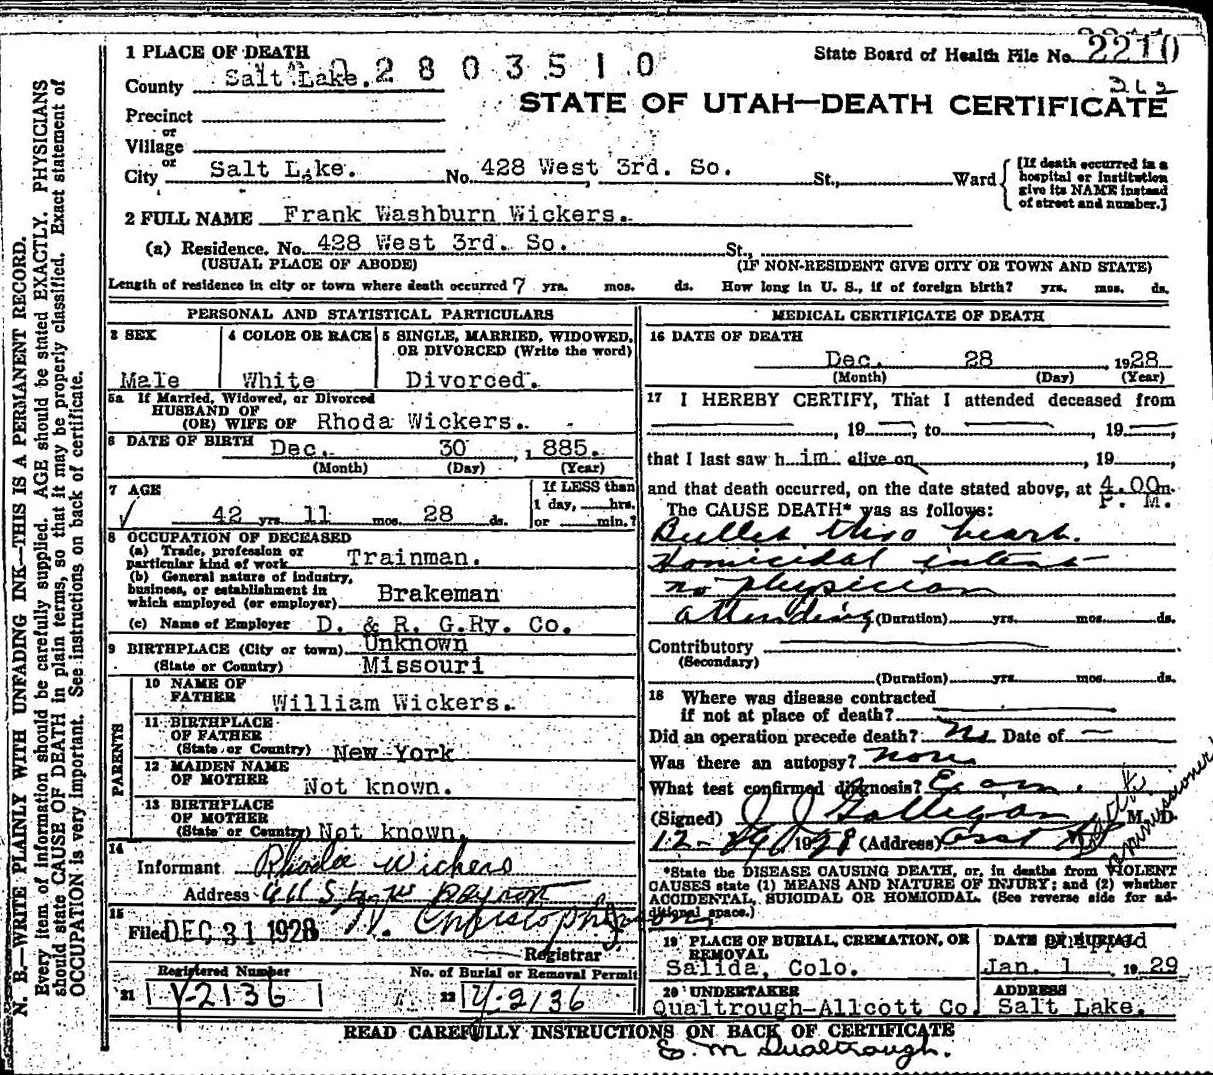 1 PLACE OF DEATH
State Board of Health File No. 2210
0 2 8 0 3 5 1 0
County Salt Lake.
362
STATE OF UTAH—DEATH CERTIFICATE
Precinct
or
Village
or
City Salt Lake. No. 428 West 3rd. So. St., Ward
[If death occurred in a hospital or institution give its NAME instead of street and number.]
2 FULL NAME Frank Washburn Wickers.
(a) Residence. No. 428 West 3rd. So. St.,
(USUAL PLACE OF ABODE) (IF NON-RESIDENT GIVE CITY OR TOWN AND STATE)
Length of residence in city or town where death occurred 7 yrs. mos. ds. How long in U. S., if of foreign birth? yrs. mos. ds.
PERSONAL AND STATISTICAL PARTICULARS
3 SEX
Male
4 COLOR OR RACE
White
5 SINGLE, MARRIED, WIDOWED, OR DIVORCED (Write the word)
Divorced.
5a If Married, Widowed, or Divorced
HUSBAND OF
(OR) WIFE OF Rhoda Wickers.
6 DATE OF BIRTH Dec. 30 , 1885.
(Month) (Day) (Year)
7 AGE
42 yrs. 11 mos. 28 ds.
If LESS than
1 day, hrs.
or min.?
8 OCCUPATION OF DECEASED
(a) Trade, profession or
particular kind of work Trainman.
(b) General nature of industry,
business, or establishment in
which employed (or employer) Brakeman
(c) Name of Employer D. & R. G.Ry. Co.
9 BIRTHPLACE (City or town) Unknown
(State or Country) Missouri
PARENTS
10 NAME OF
FATHER William Wickers.
11 BIRTHPLACE
OF FATHER
(State or Country) New York
12 MAIDEN NAME
OF MOTHER Not known.
13 BIRTHPLACE
OF MOTHER
(State or Country) Not known.
14
Informant Rhoda Wickers
Address
15
Filed DEC 31 1928
Registrar
Registered Number
21 Y-2136
No. of Burial or Removal Permit
22 Y-2136
MEDICAL CERTIFICATE OF DEATH
16 DATE OF DEATH
Dec. 28 , 1928
(Month) (Day) (Year)
17 I HEREBY CERTIFY, That I attended deceased from
, 19 , to , 19 ,
that I last saw him alive on , 19 ,
and that death occurred, on the date stated above, at 4.00 m.
P. M.
The CAUSE DEATH* was as follows:
Bullet thro heart.
Homicidal intent
no physician
attending (Duration) yrs. mos. ds.
Contributory
(Secondary)
(Duration) yrs. mos. ds.
18 Where was disease contracted
if not at place of death?
Did an operation precede death? No Date of —
Was there an autopsy? none
What test confirmed diagnosis? Exam.
(Signed) J J Galligan M. D.
12-29 1928 (Address) Asst Health Commissioner
*State the DISEASE CAUSING DEATH, or, in deaths from VIOLENT
CAUSES state (1) MEANS AND NATURE OF INJURY; and (2) whether
ACCIDENTAL, SUICIDAL OR HOMICIDAL. (See reverse side for additional space.)
19 PLACE OF BURIAL, CREMATION, OR
REMOVAL
Salida, Colo.
DATE OF BURIAL
Shipped
Jan. 1 , 1929
20 UNDERTAKER
Qualtrough-Allcott Co.
ADDRESS
Salt Lake.
READ CAREFULLY INSTRUCTIONS ON BACK OF CERTIFICATE
E. M Qualtrough.
N. B.—WRITE PLAINLY WITH UNFADING INK—THIS IS A PERMANENT RECORD.
Every item of information should be carefully supplied. AGE should be stated EXACTLY. PHYSICIANS
should state CAUSE OF DEATH in plain terms, so that it may be properly classified. Exact statement of
OCCUPATION is very important. See instructions on back of certificate.